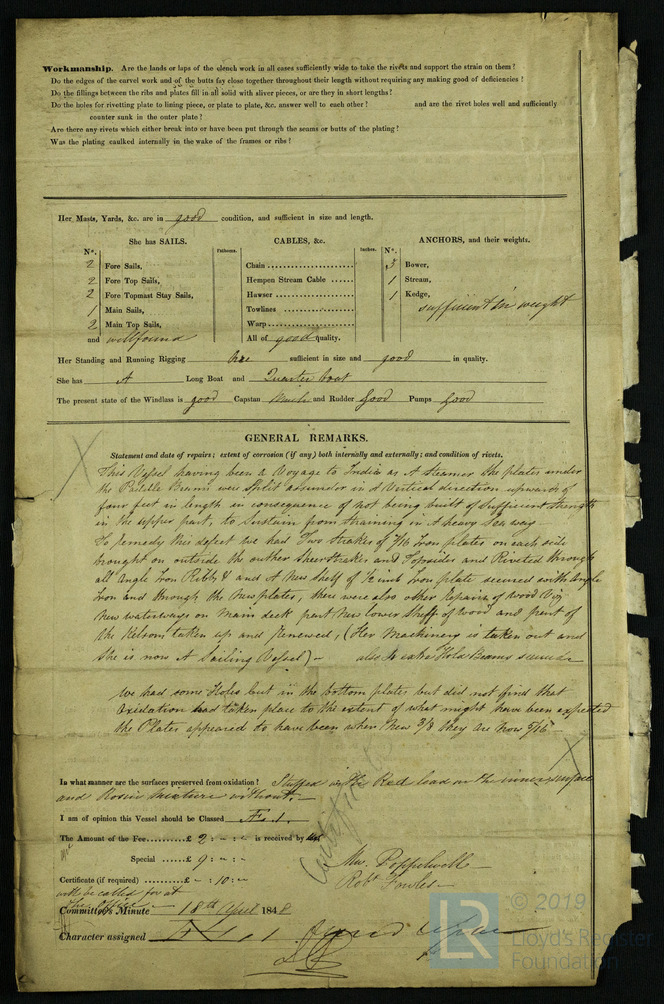 Workmanship. Are the lands or laps of the clench work in all cases sufficiently wide to take the rivets and support the strain on them?
Do the edges of the carvel work and of the butts fay close together throughout their length without requiring any making good of deficiencies?
Do the fillings between the ribs and plates fill in all solid with sliver pieces, or are they in short lengths?
Do the holes for rivetting plate to lining piece, or plate to plate, &c. answer well to each other? and are the rivet holes well and sufficiently
counter sunk in the outer plate?
Are there any rivets which either break into or have been put through the seams or butts of the plating?
Was the plating caulked internally in the wake of the frames or ribs?
Her Masts, Yards, &c. are in good condition, and sufficient in size and length.
She has SAILS. Fathoms. CABLES, &c. Inches. Nº. ANCHORS, and their weights.
Nº.
2 Fore Sails, Chain 3 Bower,
2 Fore Top Sails, Hempen Stream Cable 1 Stream,
2 Fore Topmast Stay Sails, Hawser 1 Kedge,
sufficient in weight
1 Main Sails, Towlines
2 Main Top Sails, Warp
and wellfound All of good quality.
Her Standing and Running Rigging sufficient in size and good in quality.
She has A Long Boat and Quarter boat
The present state of the Windlass is good Capstan and Rudder Good Pumps Good
GENERAL REMARKS.
Statement and date of repairs; extent of corrosion (if any) both internally and externally; and condition of rivets.
This Vessel having been a Voyage to India as A Steamer the plates under
the Paddle Beams were split assunder in A Vertical direction upwards of
four feet in length in consequence of not being built of sufficient strength
in the upper part, to sustain from straining in A heavy sea way
To remedy this defect we had Two strakes of 7/16 Iron plates on each side
brought on outside the outher Sheerstrakes and Topsides and Riveted through
all Angle Iron Ribbs & and A New Shelf of 1/2 inch Iron plate secured with Angle
Iron and through the New plates, there were also other repairs of wood Viz
New waterways on main deck part New lower Shelf of wood and part of
the Kelson taken up and Renewed, (Her Machinery is taken out and
she is now A Sailing Vessel) also extra Hold Beams
We had some Holes but in the bottom plates but did not find that
Oxidation had taken place to the extent of what might have been expected
the Plates appeared to have been when New 3/8 they are now 5/16
In what manner are the surfaces preserved from oxidation? Red lead on the inner surface
and Rosin Mixture without.
I am of opinion this Vessel should be Classed
The Amount of the Fee £ 2 : - : - is received by
Special £ 9 : - : -
Certificate (if required) £ - : 10 : -
Certificate
Mw. Poppelwell
Robt Fowles
will be called for at
the Office
Committee's Minute 18th April 1848
Character assigned
© 2019
LR
Lloyd's Register
Foundation